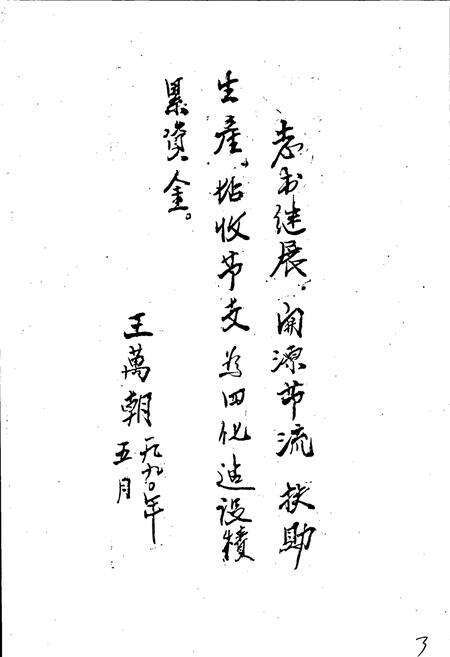 志书继展，開源节流扶助
生產，增收节支为四化建设積
累資金。
王萬朝一九九〇年
五月
3